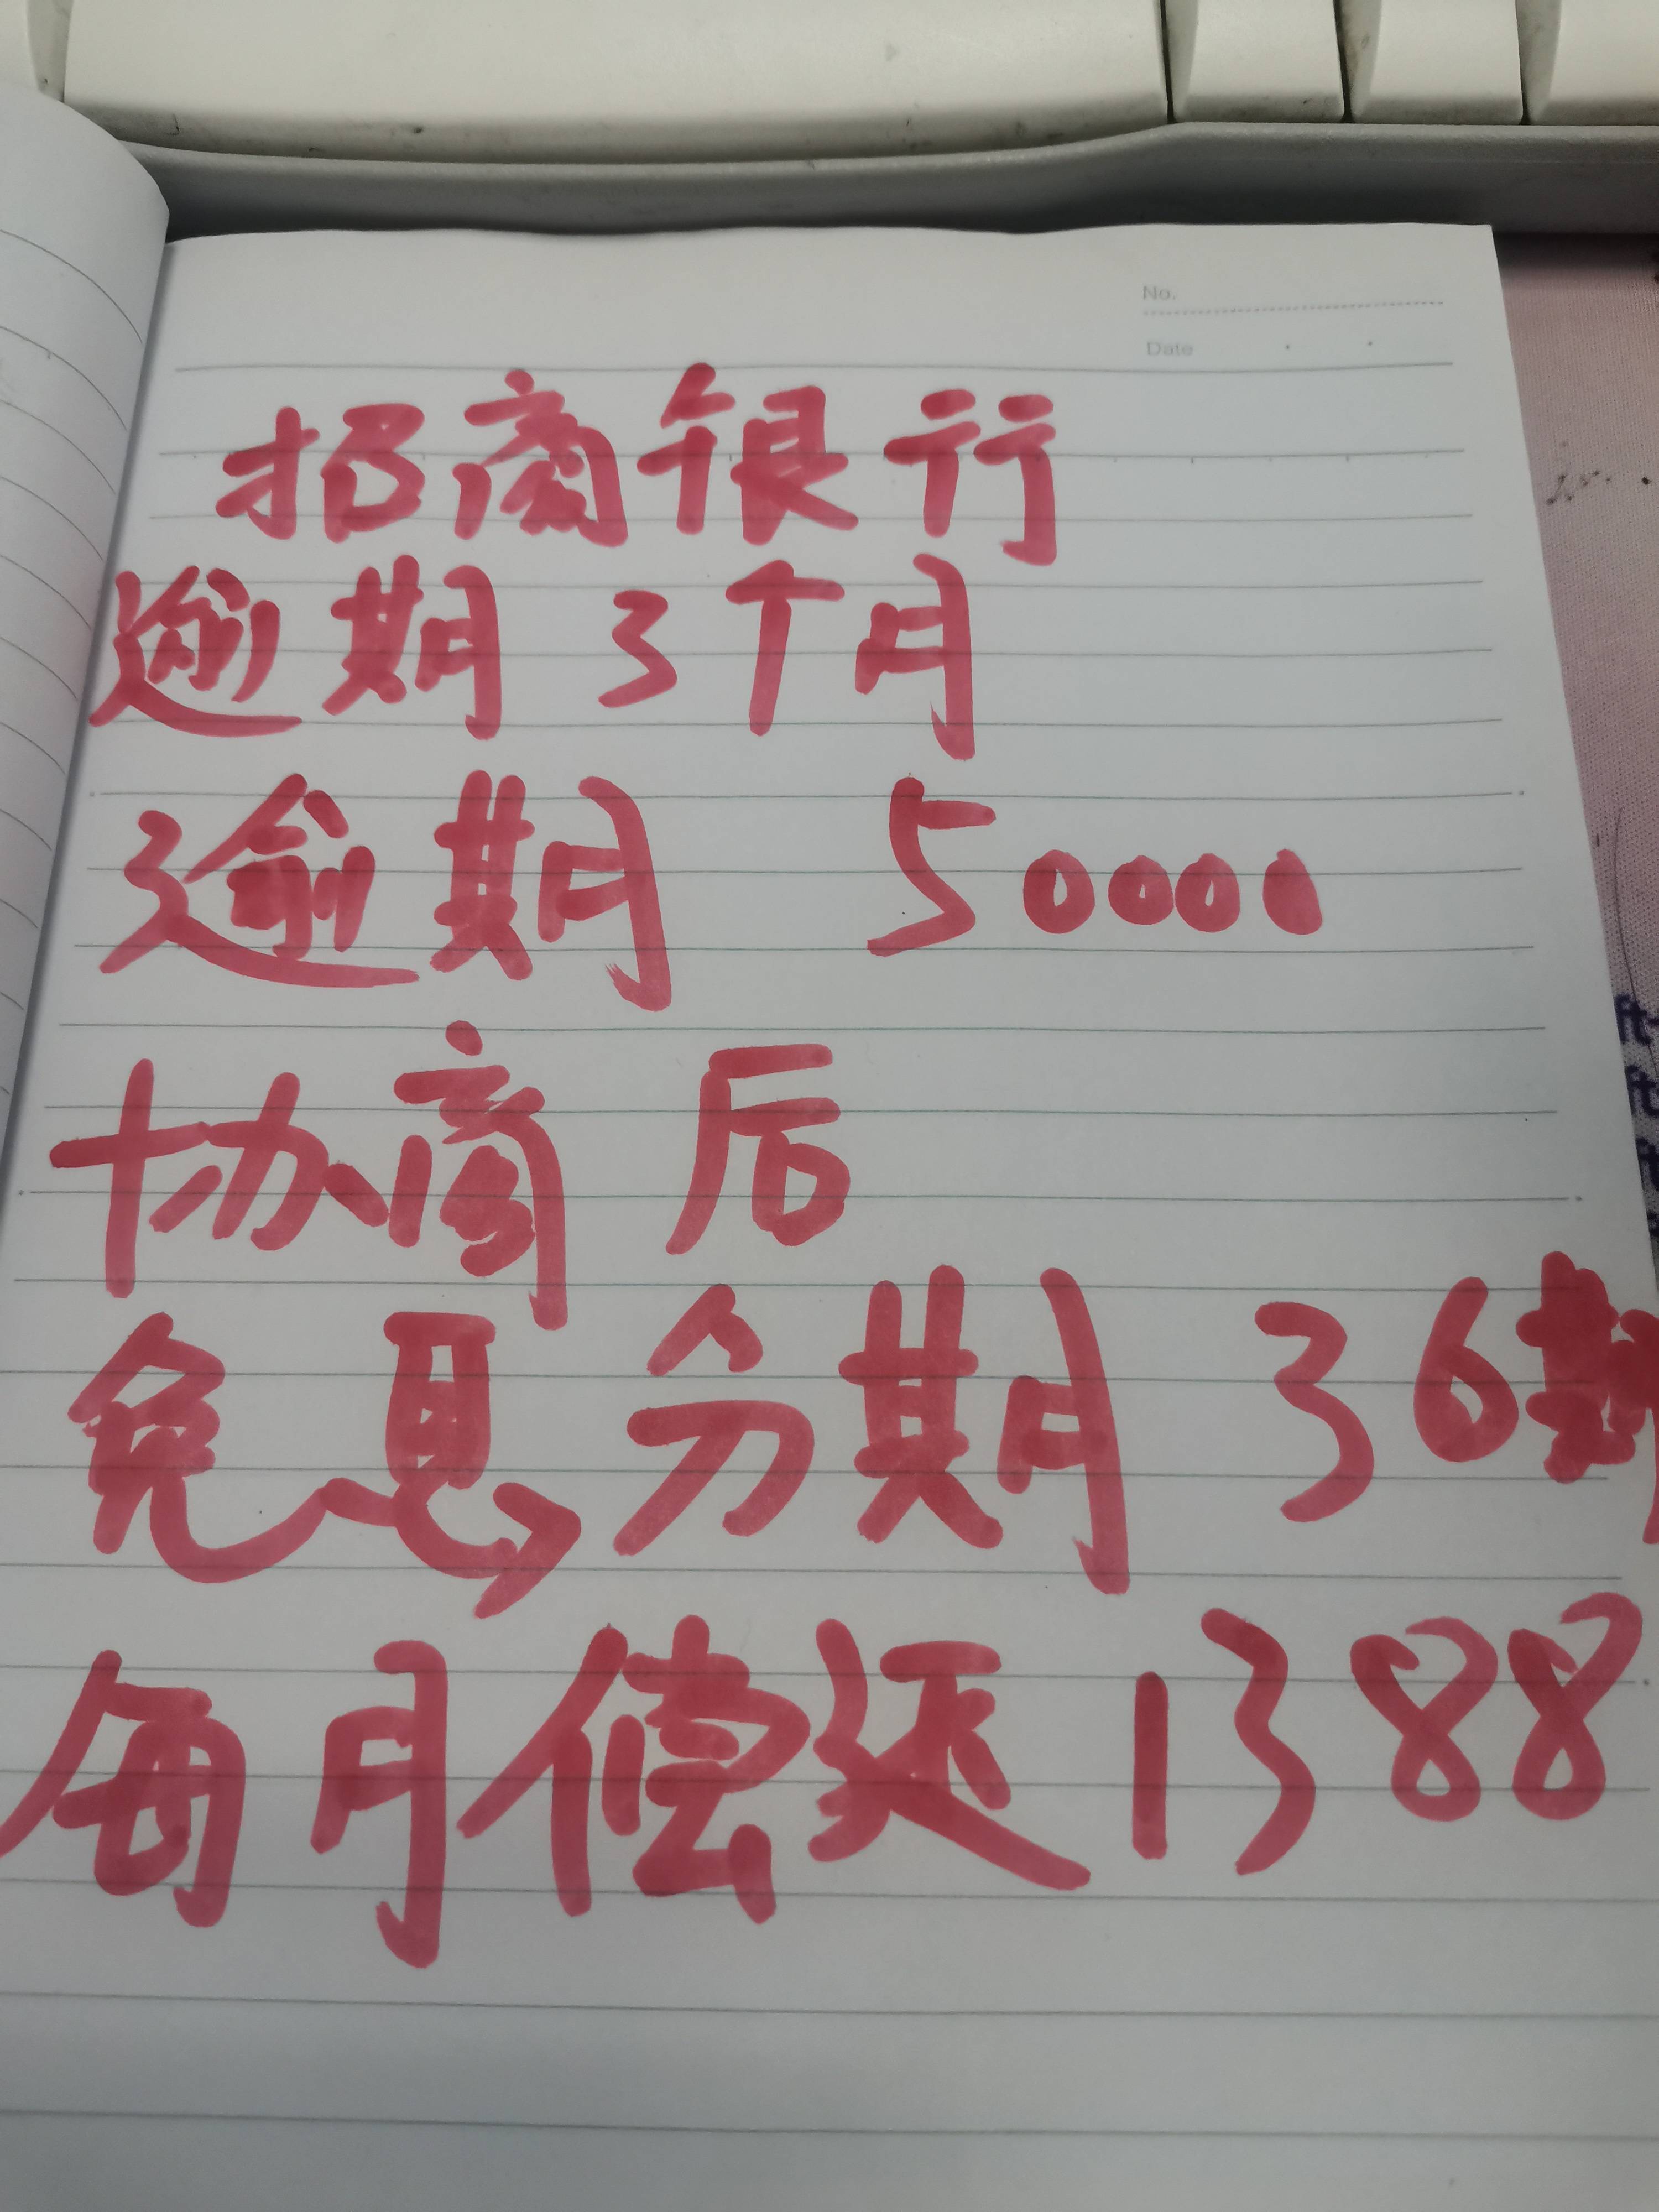 No.
Date
招商银行
逾期 3个月
逾期 50000
协商后
免息分期 36期
每月偿还1388